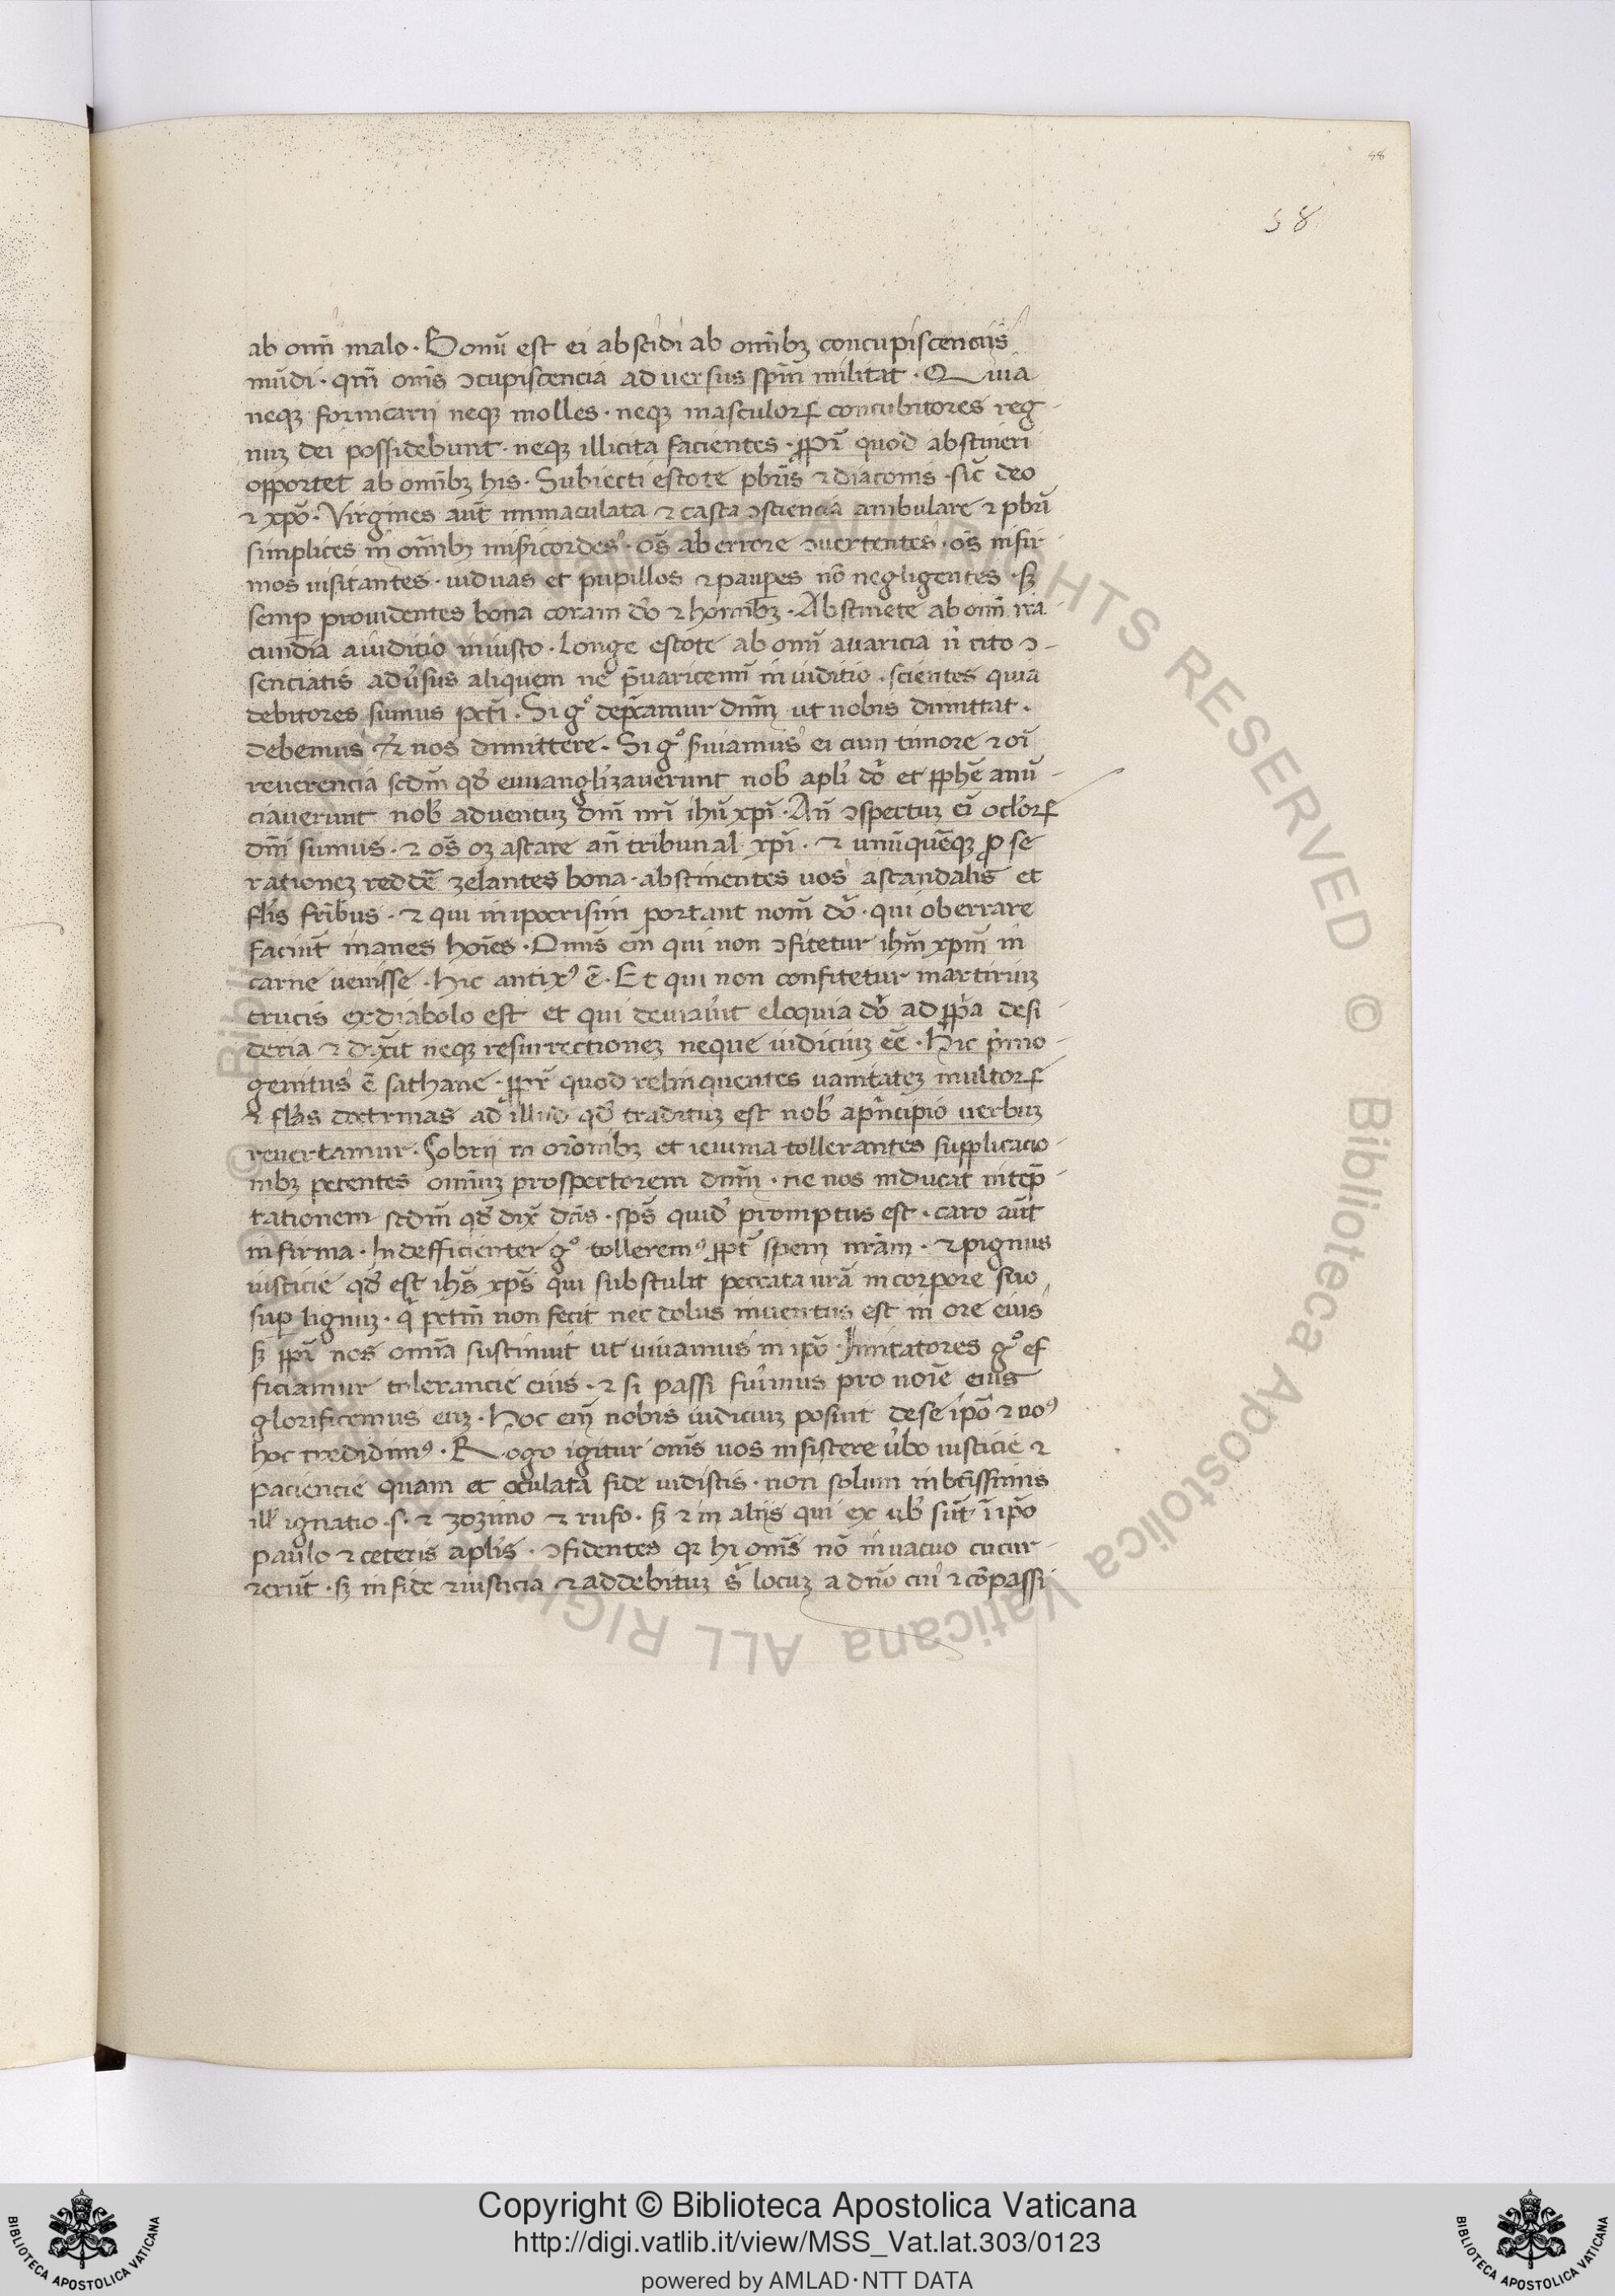 58
58
ab omĩ malo · Bonũ est ei abscidi ab omĩbꝫ concupiscenciis
mũdi · qm̃ om̃s ꝯcupiscencia adversus spm̃ militat · Quia
neqꝫ fornicarij neqꝫ molles · neqꝫ masculorꝝ concubitores reg-
nuꝫ dei possidebunt · neqꝫ illicita facientes · ꝓpt̃ quod abstineri
opportet ab omĩbꝫ his · Subiecti estote pbr̃is ⁊ diaconis · sic̃ deo
⁊ xp̃o · Virgines aut̃ immaculata ⁊ casta ꝯsciencia ambulare ⁊ pbr̃i
simplices in om̃ibꝫ misĩcordes · os̃ ab errore ꝯvertentes · os̃ infir-
mos visitantes · viduas et pupillos ⁊ pauꝑes nõ negligentes · sꝫ
semꝑ providentes bona coram dõ ⁊ homĩbꝫ · Abstinete ab omĩ ira-
cundia a iuditio iniusto · Longe estote ab omĩ avaricia ñ cito ꝯ-
senciatis adv̓sus aliquem ne p̃varicemĩ in iuditio · scientes quia
debitores sumus pct̃i · Si gͦ dep̃camur dnm̃ ut nobis dimittat ·
debemus ⁊ nos dimittere · Si gͦ s̓viamus ei cum timore ⁊ oĩ
reverencia scdm̃ qđ euuanglizaverunt nob̓ apl̓i dõ et ꝓphẽ anũ-
ciaverunt nob̓ adventuꝫ dñi nr̃i ihũ xp̃i · Añ ꝯspectuꝫ eĩ ocl̓orꝝ
dñi sumus · ⁊ os̃ oꝫ astare añ tribunal xp̃i · ⁊ unũquẽqꝫ ꝓ se
rationeꝫ reddẽ zelantes bona · abstinentes vos a scandalis et
fl̓is fr̃ibus · ⁊ qui in ipocrisim portant nom̃ dõ · qui oberrare
faciũt inanes hoĩes · Omĩs em̃ qui non ꝯfitetur ihm̃ xpm̃ in
carne venisse · Hic antixꝰ ẽ · Et qui non confitetur martiriuꝫ
crucis ex diabolo est et qui deviav̓it eloquia dõ ad ꝓp̃a desi-
deria ⁊ dix̃it neqꝫ resurrectioneꝫ neque iudiciuꝫ eẽ · Hic p̓mo-
genitus ẽ sathane · ꝓpt̃ quod relinquentes vanitateꝫ multorꝝ
⁊ fl̓as doctrinas ad illud qđ traditum est nob̓ a p̓ncipio verbuꝫ
revertamur · Sobrij in orõnibꝫ et ieiunia tollerantes supplicacio-
nibꝫ petentes omniũ prospectorem dnm̃ · ne nos inducat in tẽp-
tationem scdm̃ qđ dix̃ dñs · sps̃ quid̓ promptus est · caro aũt
infirma · Indefficienter gͦ tolleremꝰ ꝓpt̃ spem nr̃am · ⁊ pignus
iusticie qđ est ihs̃ xps̃ qui substulit peccata nr̃a in corpore suo
suꝑ lignuꝫ · q̓ pctm̃ non fecit nec dolus inventus est in ore eius
sꝫ ꝓpt̃ nos omnia sustinuit ut vivamus in ip̃o · Imitatores gͦ ef
ficiamur tolerancie eius · ⁊ si passi fuim̃us pro noĩe eius
glorificemus euꝫ · Hoc em̃ nobis iudiciuꝫ posuit de se ip̃o ⁊ noꝰ
hoc credidimꝰ · Rogo igitur omĩs vos insistere v̓bo iusticie ⁊
paciencie quam et oculata fide vidistis · non solum in btĩssimis
ill̓ ignatio · s · ⁊ zozimo ⁊ rufo · sꝫ ⁊ in aliis qui ex vob̓ sũt · ĩ ip̃o
paulo ⁊ ceteris aplis · ꝯfidentes qꝛ hi omĩs nõ in vacuo cucur-
rerũt · sꝫ in fide ⁊ iusticia ⁊ ad debituꝫ s̓ locuꝫ a dño cui̓ ⁊ cõpassi
© Biblioteca Apostolica Vaticana ALL RIGHTS RESERVED
Copyright © Biblioteca Apostolica Vaticana
http://digi.vatlib.it/view/MSS_Vat.lat.303/0123
powered by AMLAD·NTT DATA
BIBLIOTECA APOSTOLICA VATICANA
BIBLIOTECA APOSTOLICA VATICANA